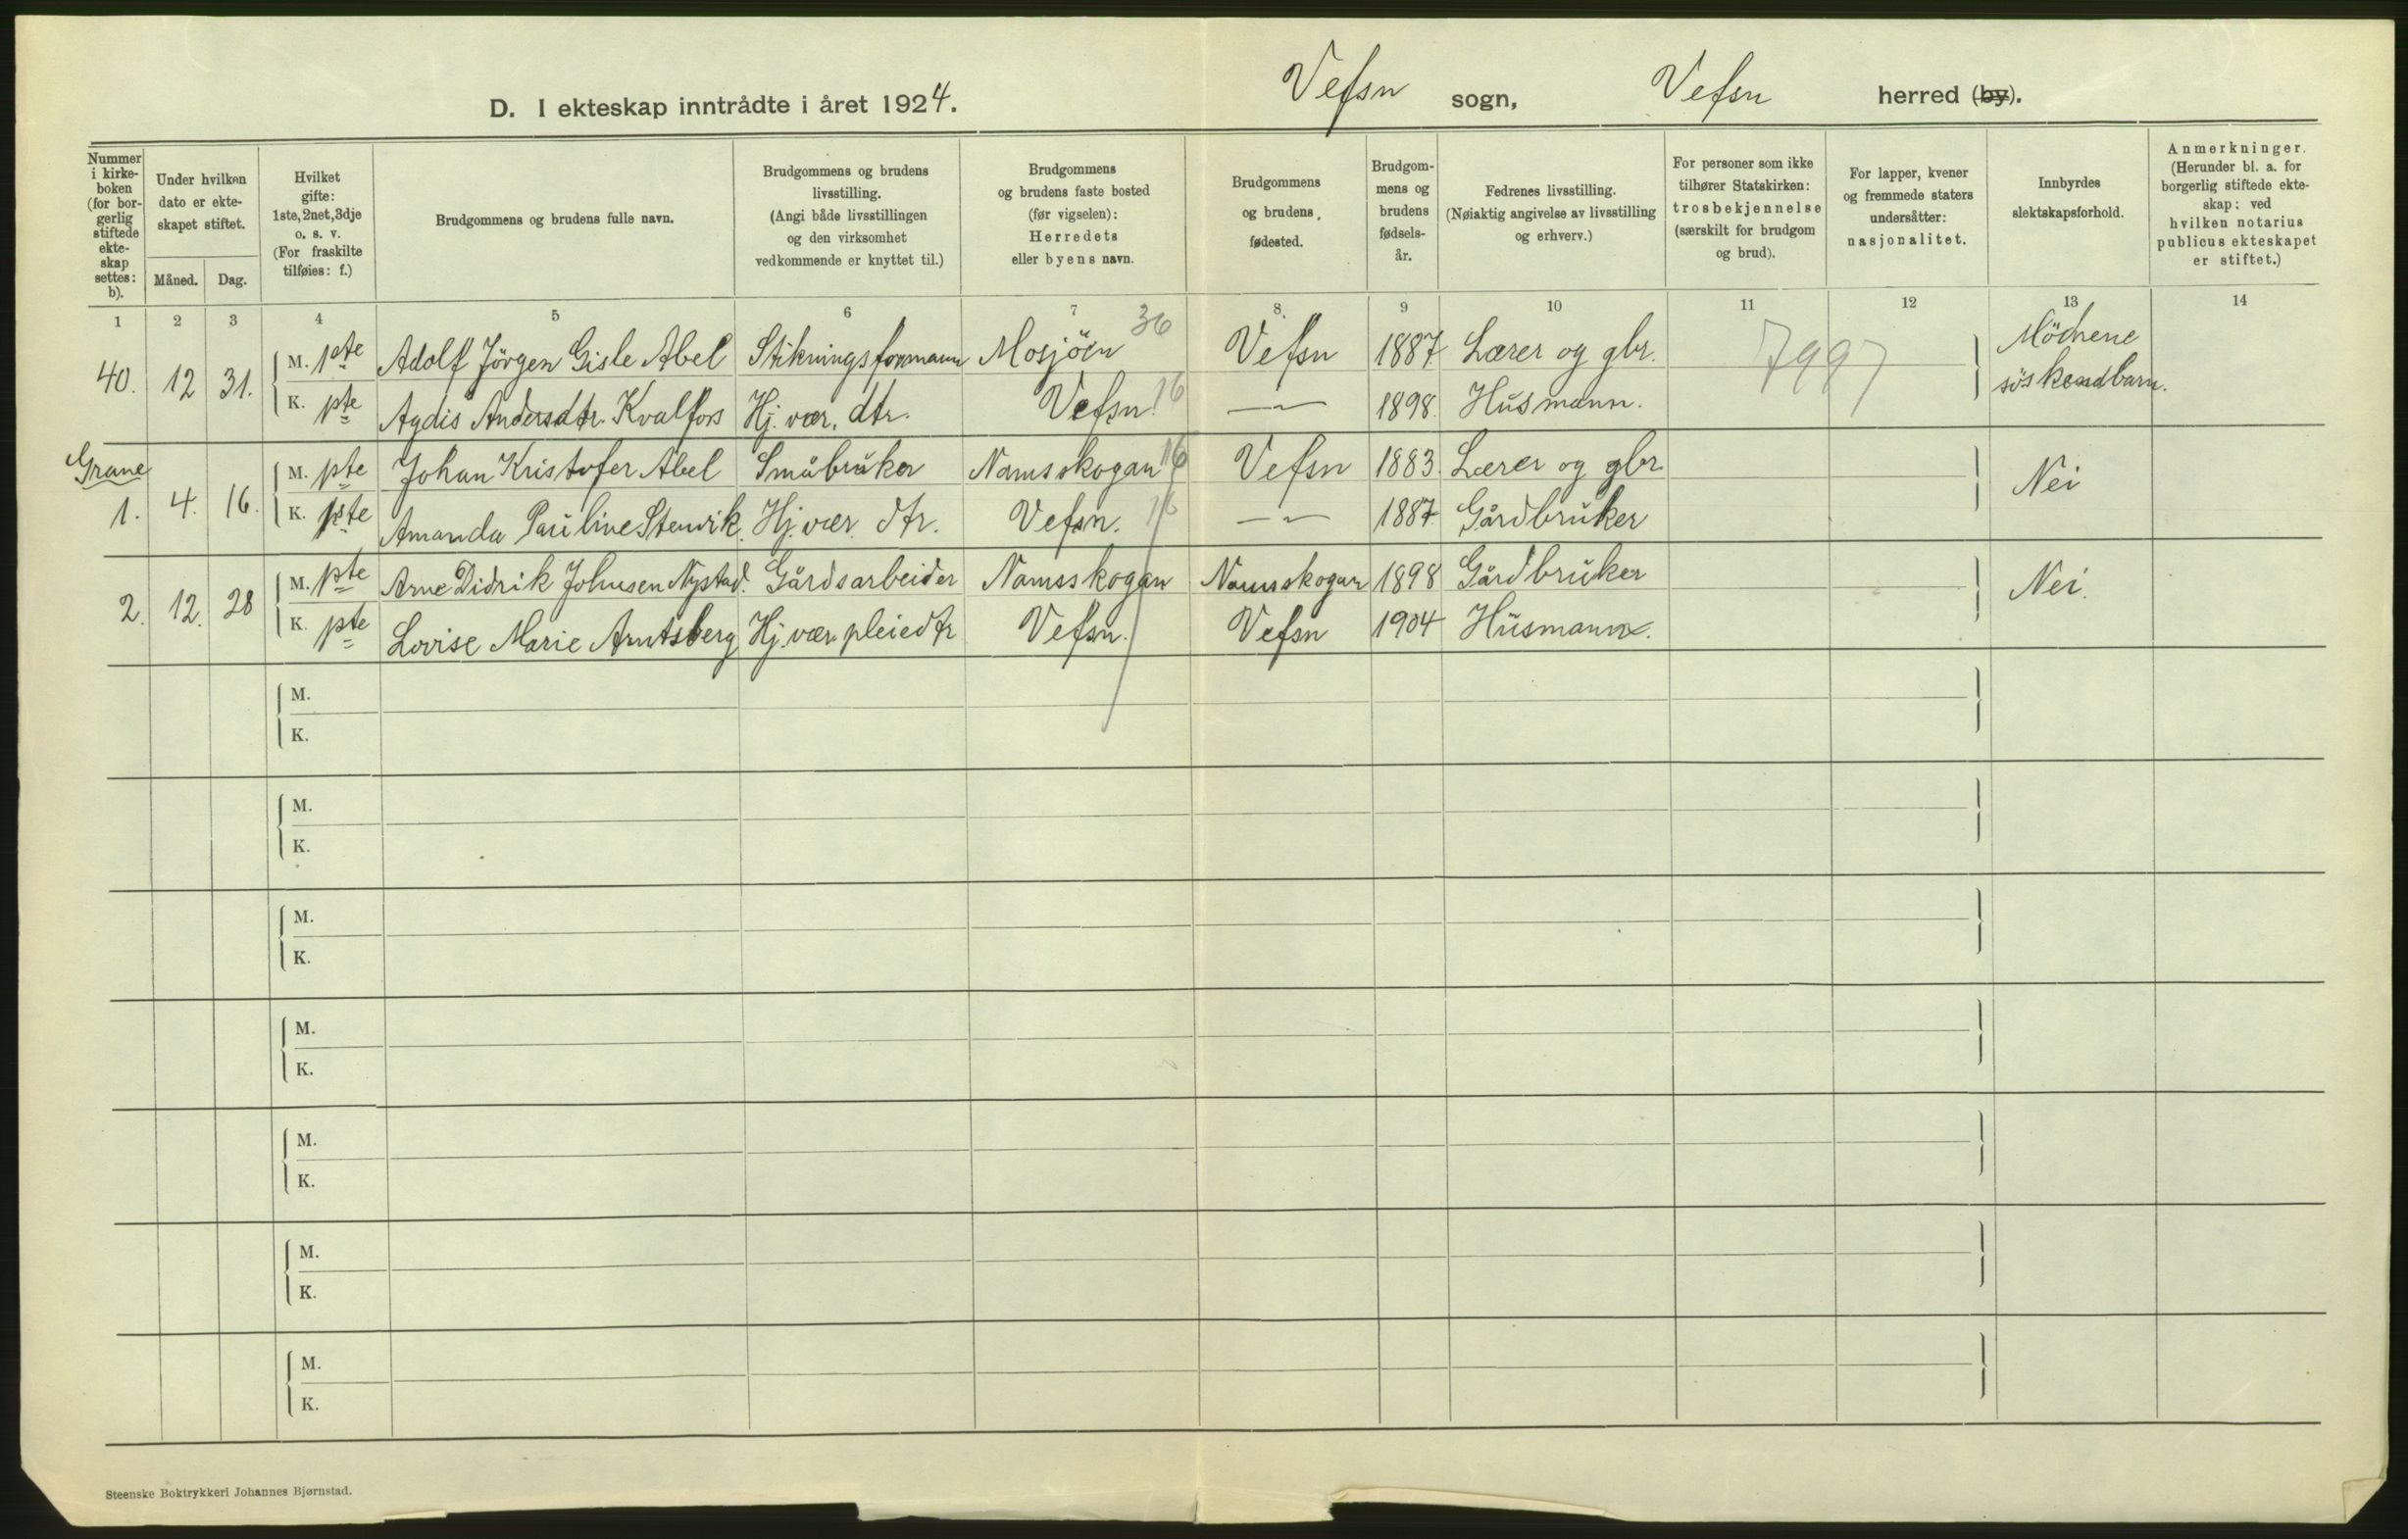 D. I ekteskap inntrådte i året 1924. Vefsn sogn, Vefsn herred (by).
Nummer i kirkeboken (for borgerlig stiftede ekteskap settes: b).
Under hvilken dato er ekteskapet stiftet.
Måned. Dag.
Hvilket gifte: 1ste, 2net, 3dje o. s. v. (For fraskilte tilføies: f.)
Brudgommens og brudens fulle navn.
Brudgommens og brudens livsstilling. (Angi både livsstillingen og den virksomhet vedkommende er knyttet til.)
Brudgommens og brudens faste bosted (før vigselen): Herredets eller byens navn.
Brudgommens og brudens fødested.
Brudgommens og brudens fødselsår.
Fedrenes livsstilling. (Nøiaktig angivelse av livsstilling og erhverv.)
For personer som ikke tilhører Statskirken: trosbekjennelse (særskilt for brudgom og brud).
For lapper, kvener og fremmede staters undersåtter: nasjonalitet.
Innbyrdes slektskapsforhold.
Anmerkninger. (Herunder bl. a. for borgerlig stiftede ekteskap: ved hvilken notarius publicus ekteskapet er stiftet.)
1 2 3 4 5 6 7 8. 9 10 11 12 13 14
40. 12 31. M. 1ste Adolf Jörgen Gisle Abel Stikningsformann Mosjöen 36 Vefsn 1887 Lærer og gbr. 7997 Mödrene söskendbarn.
K. 1ste Agdis Andersdtr. Kvalfors Hj. vær. dtr. Vefsn 16 — " — 1898 Husmann.
Grane
1. 4. 16. M. 1ste Johan Kristofer Abel Småbruker Namsskogan 16 Vefsn 1883. Lærer og gbr. Nei
K. 1ste Amanda Pauline Stenvik. Hj. vær. dtr. Vefsn. 16 — " — 1887 Gårdbruker
2. 12. 28 M. 1ste Arne Didrik Johnsen Nystad. Gårdsarbeider Namsskogan Namsskogan 1898 Gårdbruker Nei.
K. 1ste Lovise Marie Arntsberg Hj. vær. pleiedtr Vefsn. Vefsn 1904 Husmann.
M.
K.
M.
K.
M.
K.
M.
K.
M.
K.
M.
K.
M.
K.
Steenske Boktrykkeri Johannes Bjørnstad.